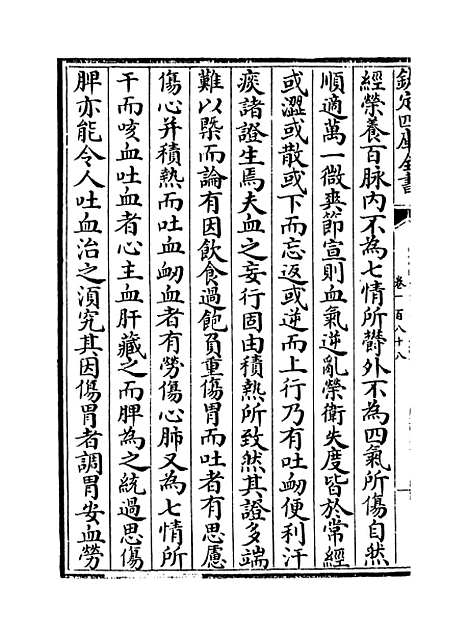 欽定四庫全書
卷一百八十八
經榮養百脉内不為七情所鬱外不為四氣所傷自然
順適萬一微爽節宣則血氣逆亂榮衛失度皆於常經
或澀或散或下而忘返或逆而上行乃有吐衂便利汗
痰諸證生焉夫血之妄行固由積熱所致然其證多端
難以槩而論有因飲食過飽負重傷胃而吐者有思慮
傷心并積熱而吐血衂血者有勞傷心肺又為七情所
干而咳血吐血者心主血肝藏之而脾為之統過思傷
脾亦能令人吐血治之須究其因傷胃者調胃安血勞